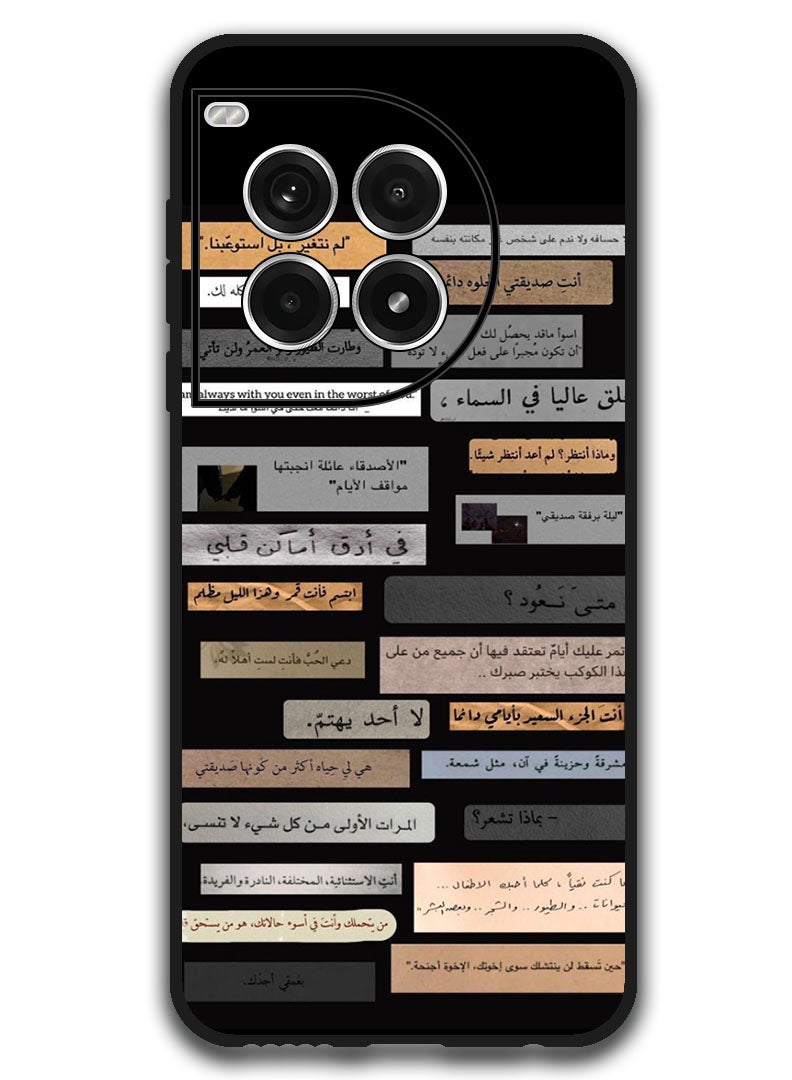 "لم نتغير ، بل استوعبنا."
حسافه ولا ندم على شخص مكانته بنفسه
أنتِ صديقتي الحلوه
كله لك.
اسوأ ماقد يحصُل لك
أن تكون مُجبراً على فعل لا تودّه
وطارت الطيور العمرُ ولن تأتي
always with you even in the worst of
عاليا في السماء ،
وماذا أنتظر؟ لم أعد أنتظر شيئًا.
"الأصدقاء عائلة انجبتها
مواقف الأيام"
"ليلة برفقة صديقي"
في أدق أماكن قلبي
ابتسم فأنت قمر وهذا الليل مظلم
متىَ نَعُود ؟
دعي الحُبَّ فأنتِ لستِ أهلاً لهُ.
تمر عليك أيامٌ تعتقد فيها أن جميع من على
هذا الكوكب يختبر صبرك ..
لا أحد يهتمّ.
أنتَ الجزء السعيد بأيامي دائما
هي لي حياه أكثر من كونها صَديقتي
مشرقةً وحزينةً في آن، مثل شمعة.
المرات الأولى من كل شيء لا تنسى،
– بماذا تشعر؟
أنتِ الاستثنائية، المختلفة، النادرة والفريدة
كنت نقياً ، كلما أحببت الاطفال ...
.. والطيور .. والشجر .. وبعض البشر"
من يتحملك وأنتَ في أسوء حالاتك، هو من يستحق
"حين تَسقط لن ينتشلك سوى إخوتك، الإخوة أجنحة."
بعُمقي أجدُك.